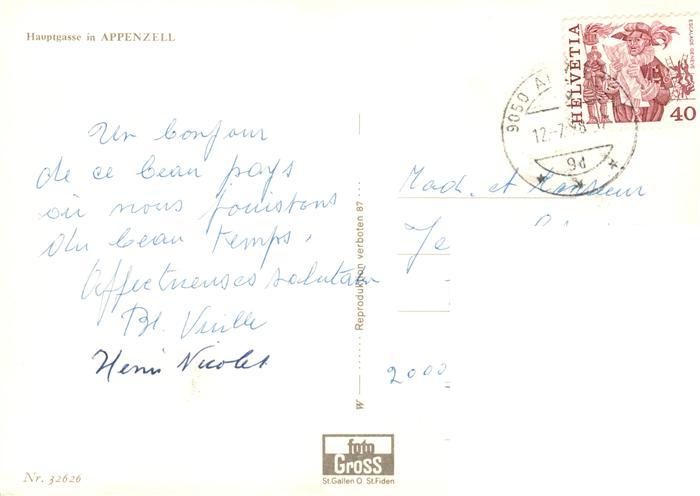 Hauptgasse in APPENZELL
HELVETIA
ESCALADE GENÈVE
40
9050
12.-7.
9d
Un bonjour
de ce beau pays
où nous jouissons
du beau temps.
Affectueuses salutations
Bl. Vuille
Henri Nicolet
Mad. et Monsieur
Je
2000
W
Reproduktion verboten 87
foto
Gross
St.Gallen O St.Fiden
Nr. 32626